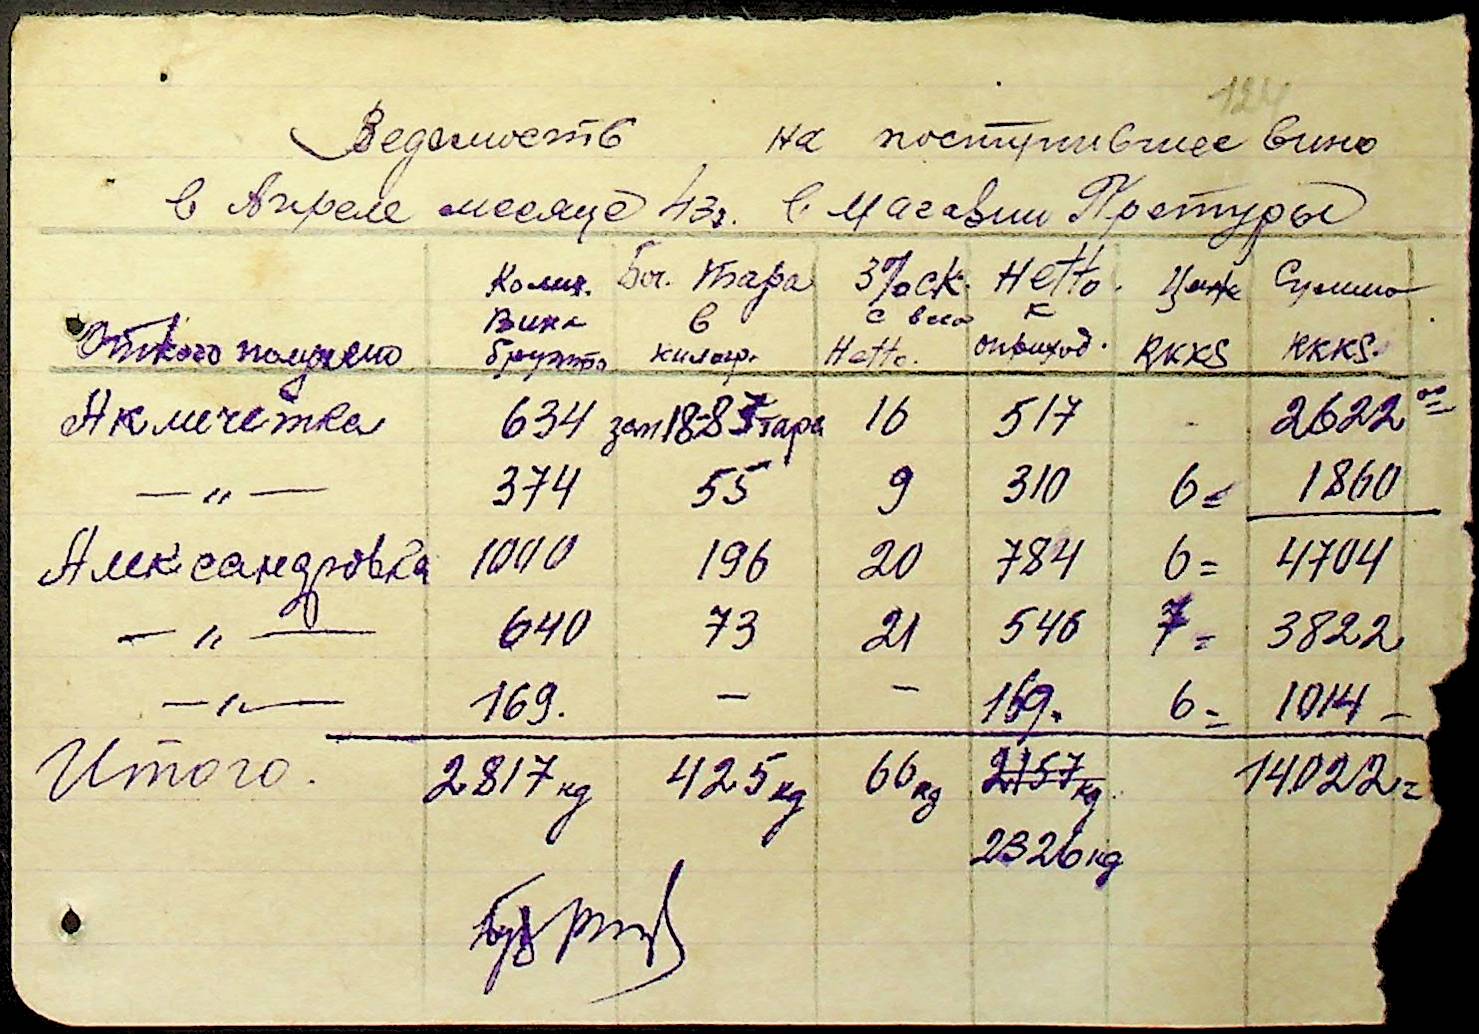 124
Ведомость на поступившее вино
в Апреле месяце 43г. в Магазин Претуры
От кого получено Колич. Вина брутто Боч. Тара в килогр. 3% ск. с вина Netto. Netto к оприход. Цена RKKS Сумма RKKS.
Акмечетка 634 18-83 тара 16 517 - 2622 00
— " — 374 55 9 310 6= 1860
Александровка 1000 196 20 784 6= 4704
— " — 640 73 21 546 7= 3822
— " — 169. — — 169. 6= 1014 —
Итого. 2817 кд 425 кд 66 кд 2157 кд. 14022=
2326 кд